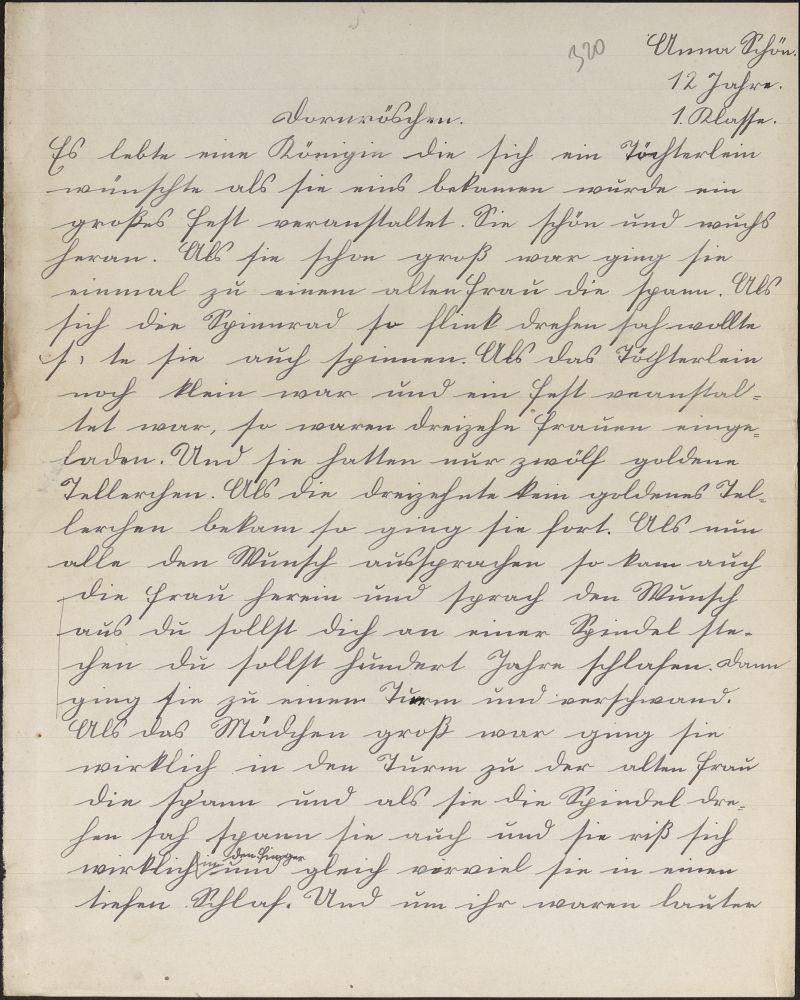 320
Anna Schön.
12 Jahre.
1. Klasse.
Dornröschen.
Es lebte eine Königin die sich ein Töchterlein
wünschte als sie eins bekamen wurde ein
großes Fest veranstaltet. Sie schön und wuchs
heran. Als sie schon groß war ging sie
einmal zu einem alten Frau die spann. Als
sich die Spinnrad so flink drehen sah wollte
te sie auch spinnen. Als das Töchterlein
noch klein war und ein Fest veanstal-
tet war, so waren dreizehn Frauen einge-
laden. Und sie hatten nur zwölf goldene
Tellerchen. Als die dreizehnte kein goldenes Tel-
lerchen bekam so ging sie fort. Als nun
alle den Wunsch aussprachen so kam auch
die Frau herein und sprach den Wunsch
aus du sollst dich an einer Spindel ste-
chen du sollst hundert Jahre schlafen. Dann
ging sie zu einem Turm und verschwand.
Als das Mädchen groß war ging sie
wirklich in den Turm zu der alten Frau
die spann und als sie die Spindel dre-
hen sah spann sie auch und sie riß sich
in den Finger
wirklich und gleich verviel sie in einen
tiefen Schlaf. Und um ihr waren lauter